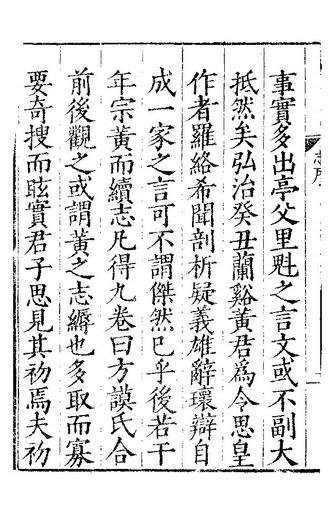 事實多出亭父里魁之言文或不副大
抵然矣弘治癸丑蘭谿黃君爲令思皇
作者羅絡希聞剖析疑義雄辭環辯自
成一家之言可不謂傑然已乎後若干
年宗黃而續志凡得九卷曰方謨氏合
前後觀之或謂黃之志縟也多取而寡
要奇搜而眩實君子思見其初焉夫初